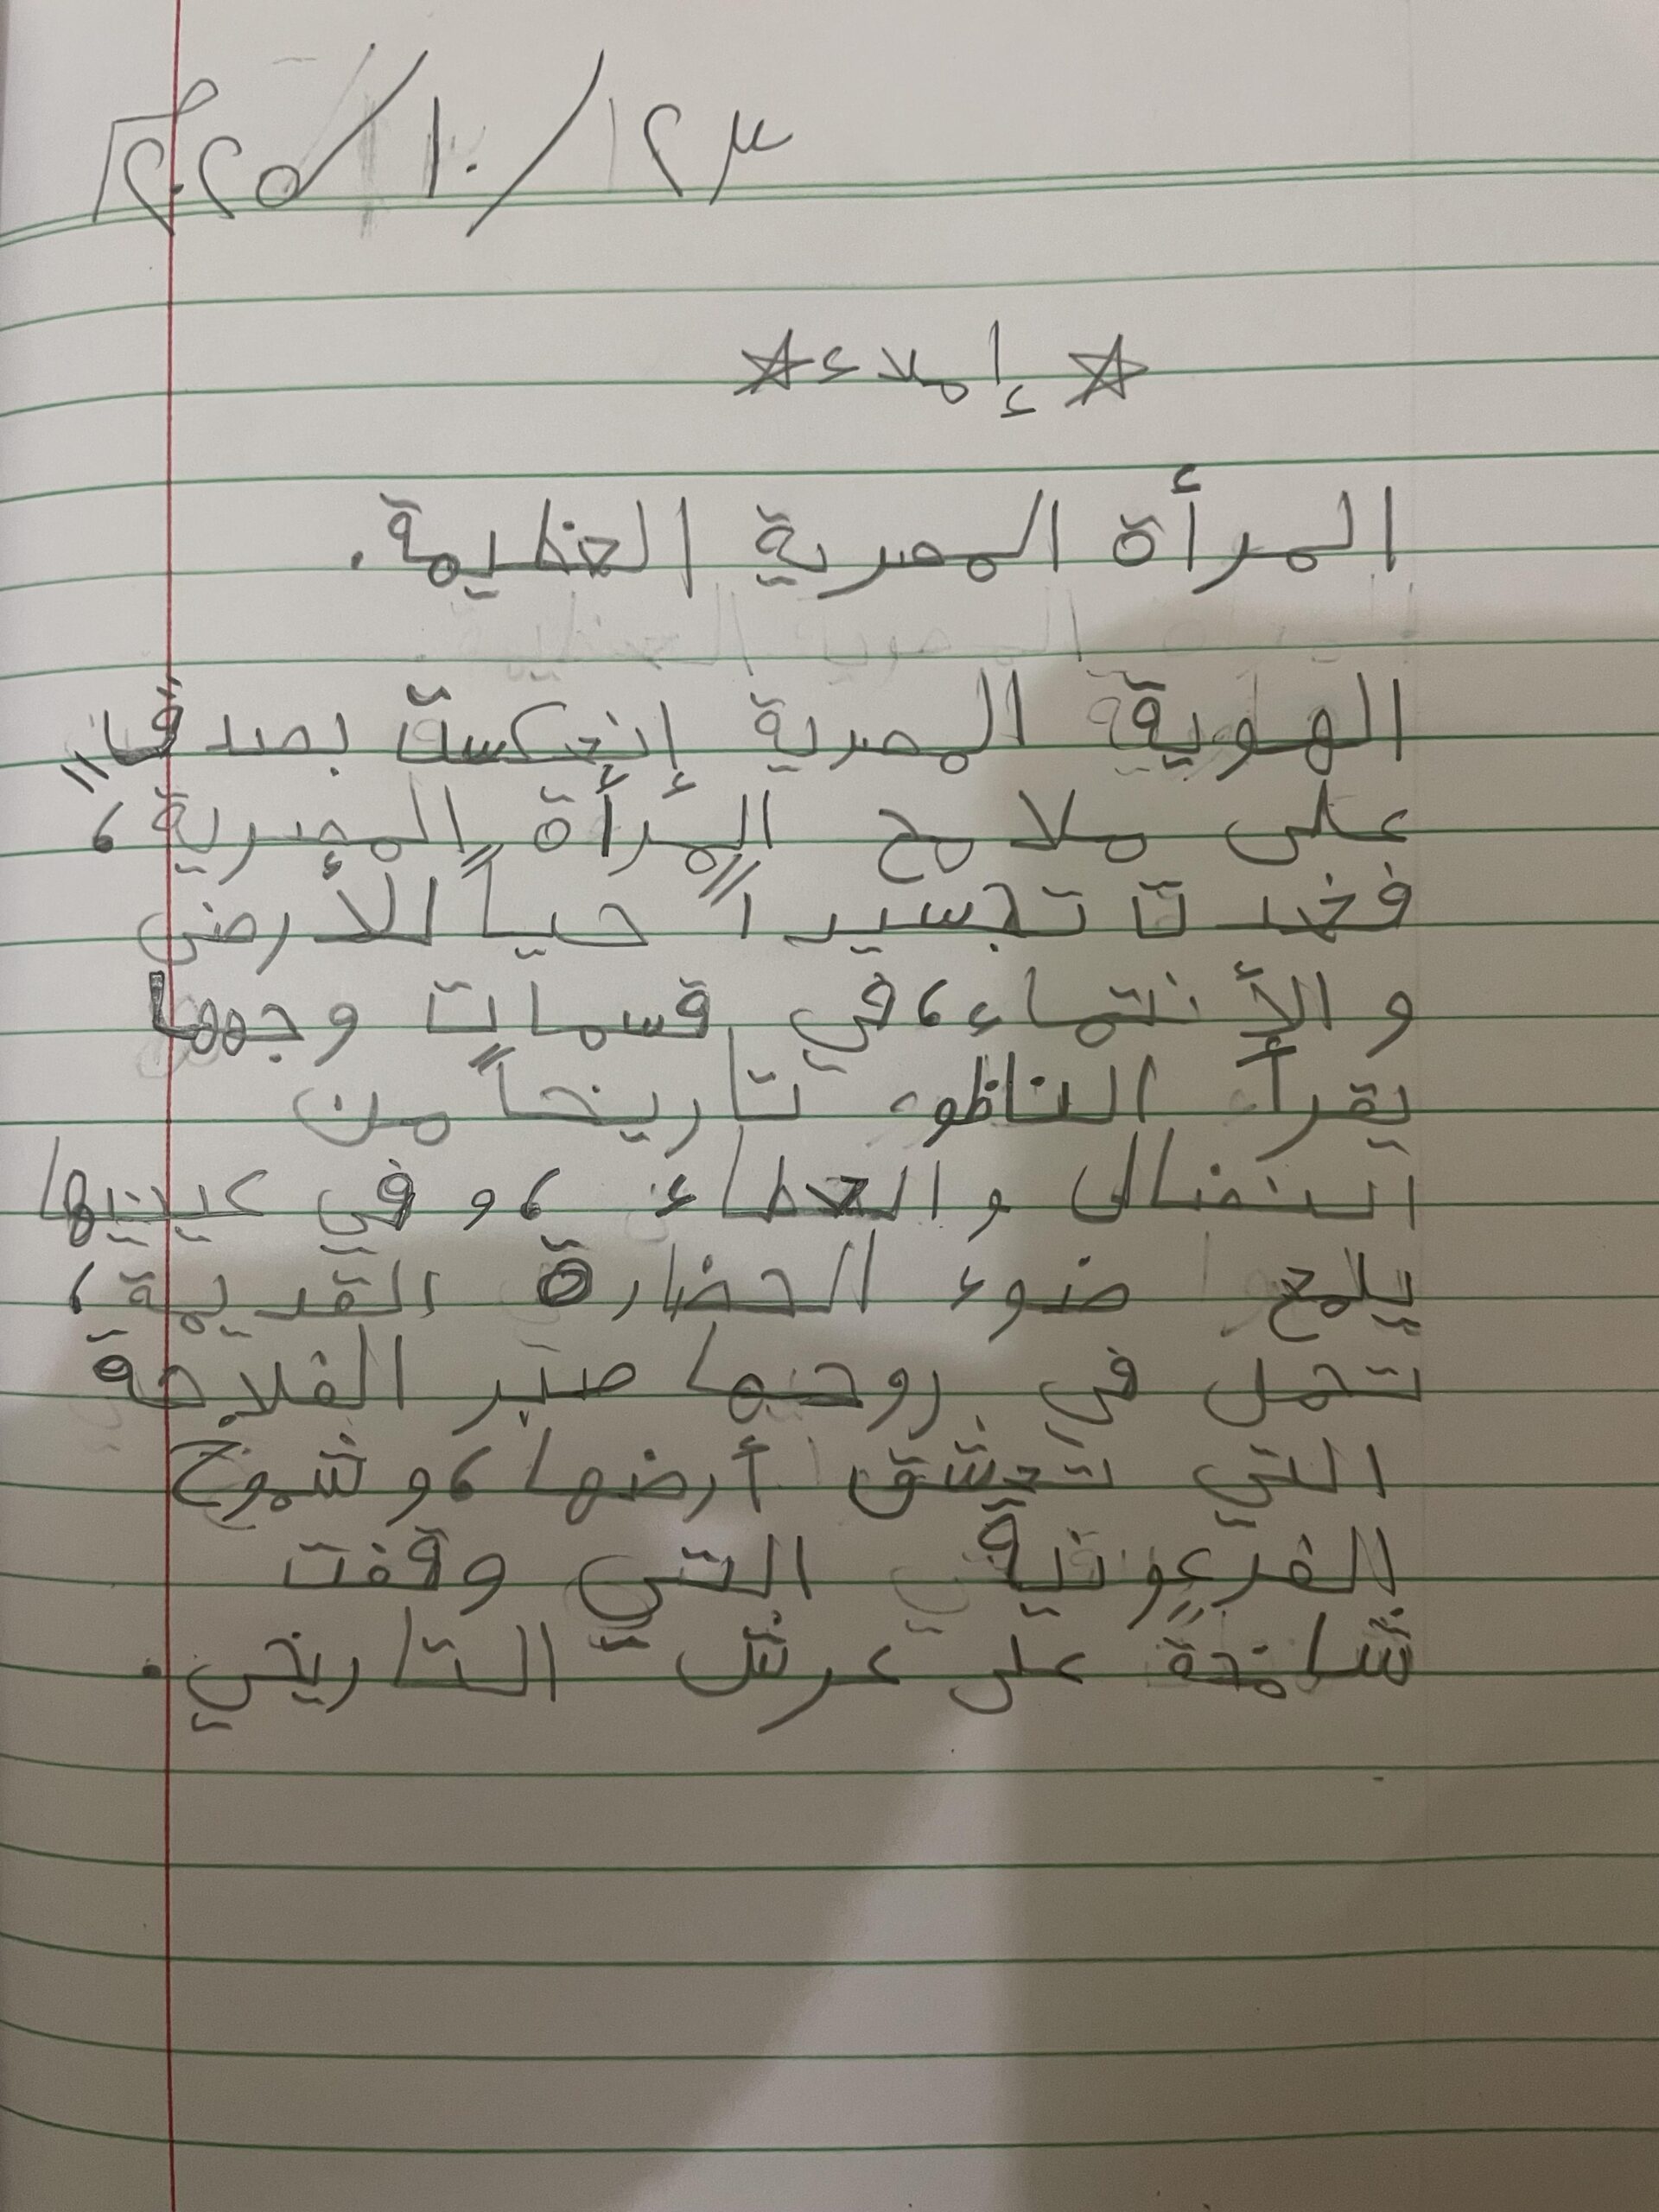 ٢٣/١٠/٢٠٢٥
☆ إملاء ☆
المرأة المصرية العظيمة.
الهوية المصرية إنعكست بصدقٍ
على ملامح المرأة المصرية،
فغدت تجسيداً حياً للأرض
و الأنتماء، في قسمات وجهها
يقرأ الناظر تاريخاً من
النضال والعطاء، و في عينيها
يلمع ضوء الحضارة القديمة،
تحمل في روحها صبر الفلاحة
التي تعشق أرضها، و شموخ
الفرعونية التي وقفت
شامخةً على عرش التاريخي.